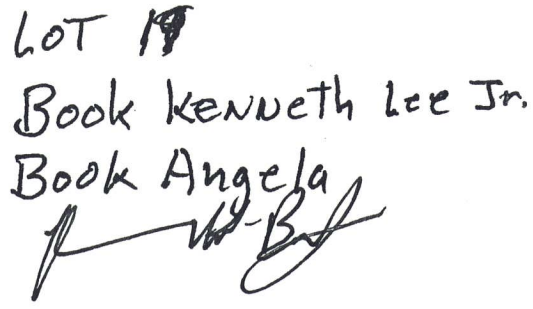 LOT
Book Kenneth Lee Jr.
Book Angela